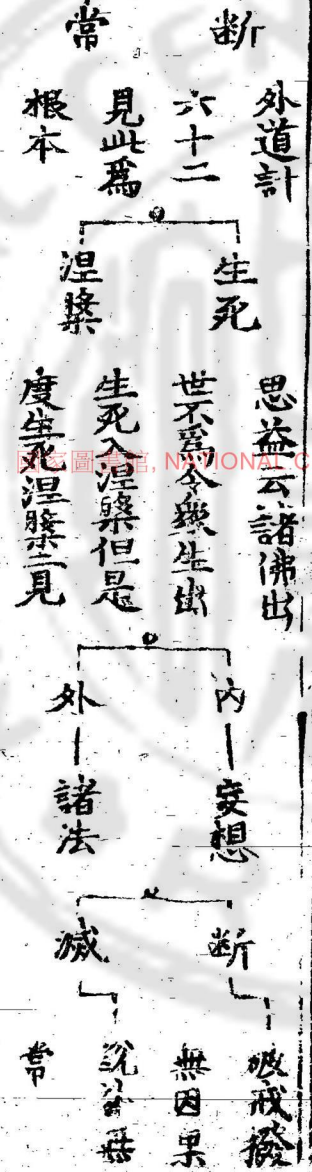 斷
常
外道計
六十二
見此爲
根本
生死
涅槃
思益云諸佛出
世不爲令衆生出
生死入涅槃但是
度生死涅槃二見
內
妄想
外
諸法
斷
滅
破戒撥
無因果
說法無
常
國家圖書館, NATIONAL C